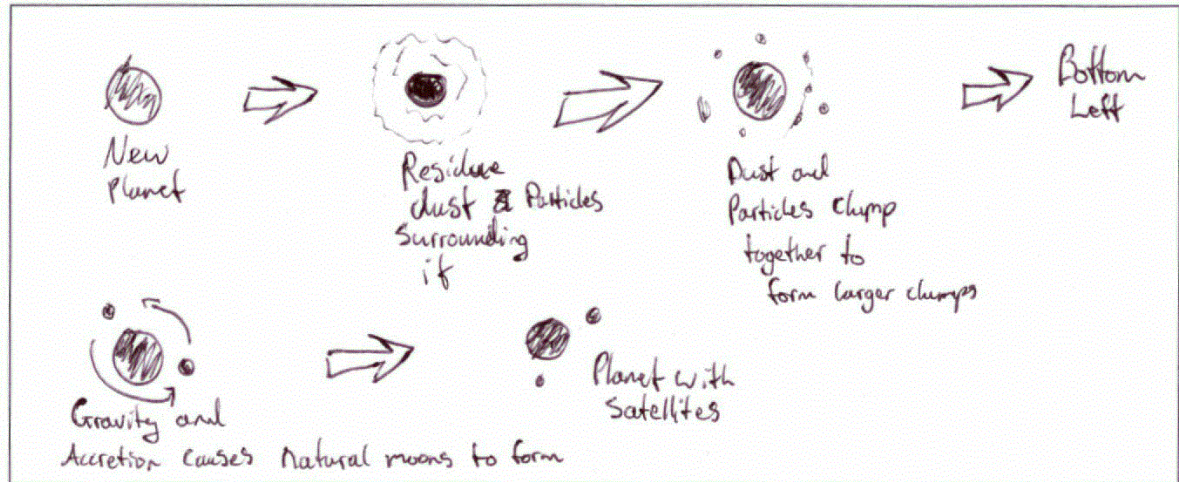 New
Planet
Residue
dust & Particles
surrounding
it
Dust and
Particles clump
together to
form larger clumps
Bottom
Left
Gravity and
Accretion causes natural moons to form
Planet with
Satellites